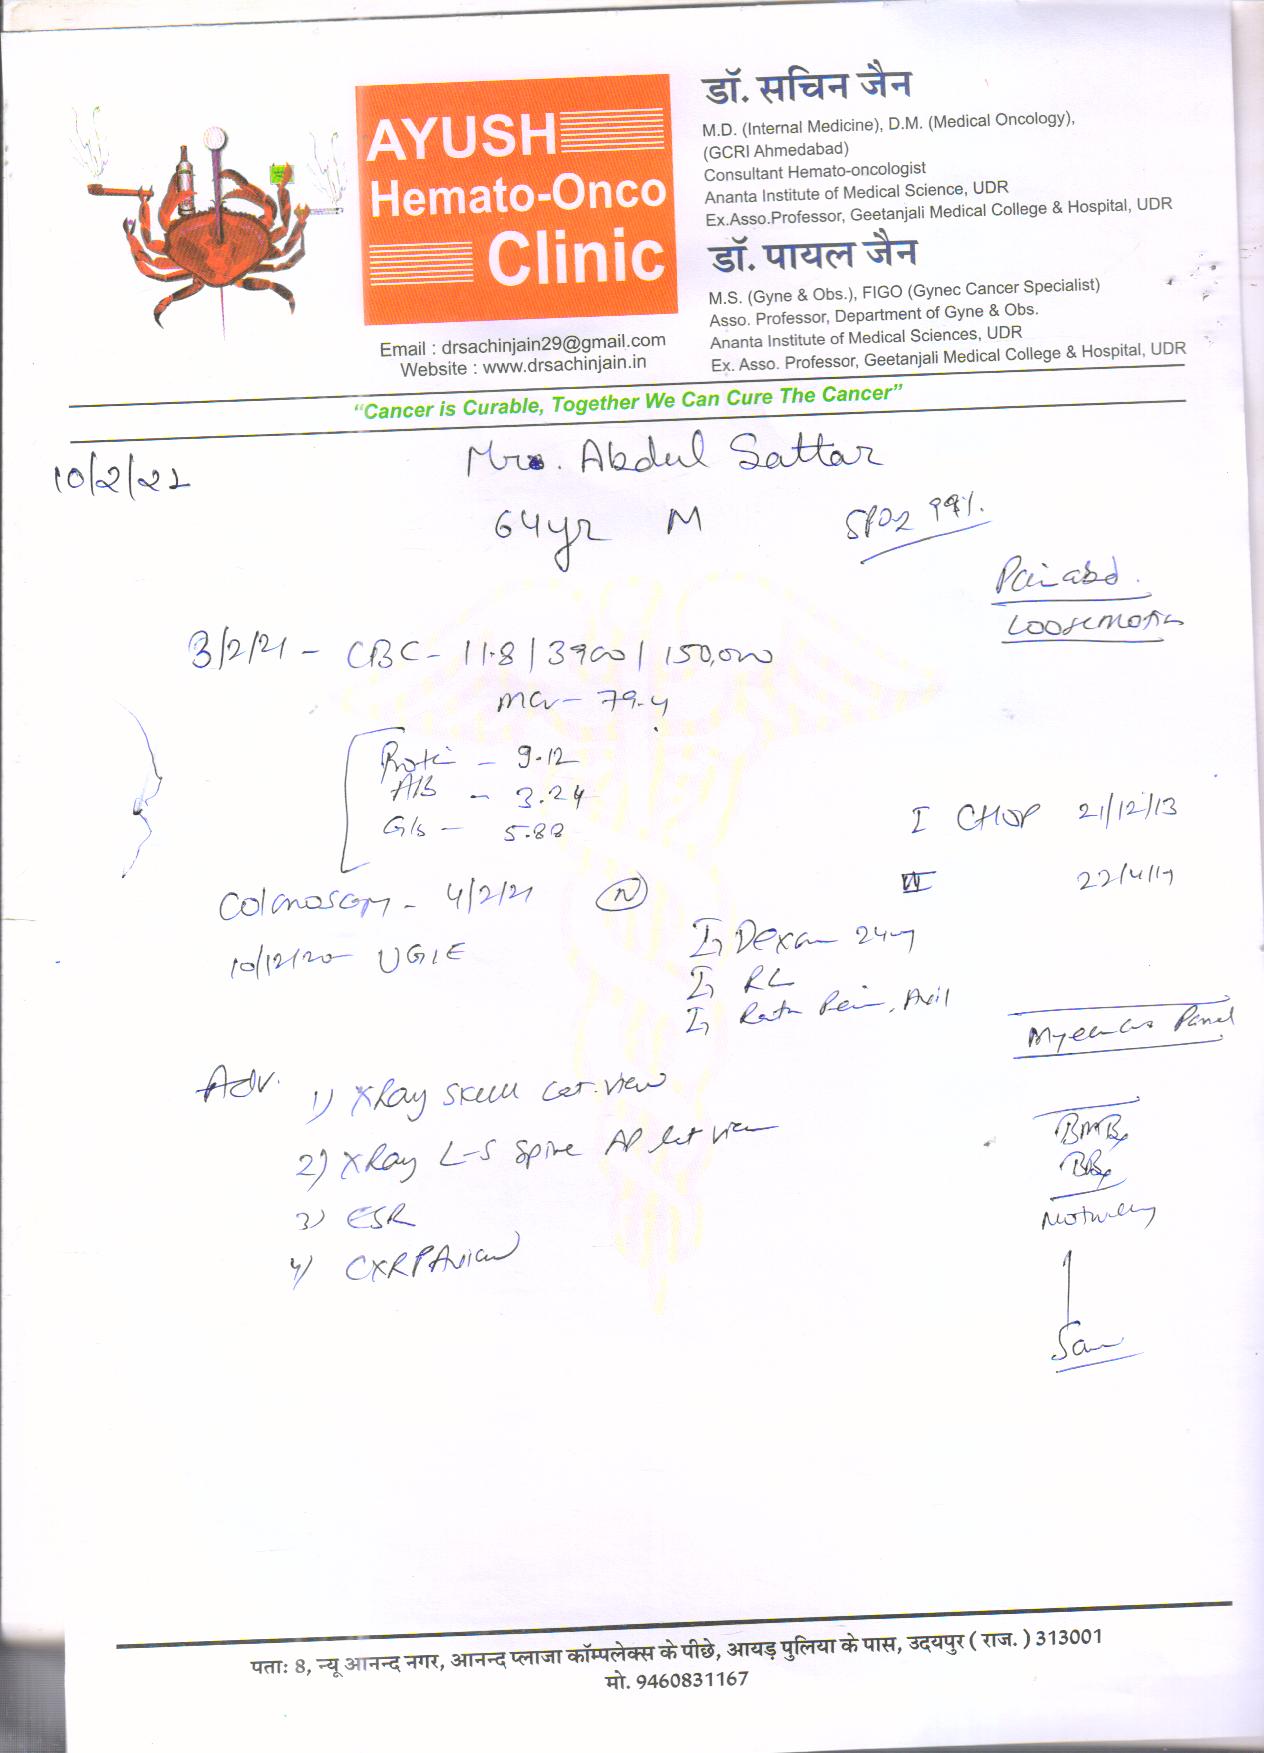 AYUSH
Hemato-Onco
Clinic
Email : drsachinjain29@gmail.com
Website : www.drsachinjain.in
डॉ. सचिन जैन
M.D. (Internal Medicine), D.M. (Medical Oncology),
(GCRI Ahmedabad)
Consultant Hemato-oncologist
Ananta Institute of Medical Science, UDR
Ex.Asso.Professor, Geetanjali Medical College & Hospital, UDR
डॉ. पायल जैन
M.S. (Gyne & Obs.), FIGO (Gynec Cancer Specialist)
Asso. Professor, Department of Gyne & Obs.
Ananta Institute of Medical Sciences, UDR
Ex. Asso. Professor, Geetanjali Medical College & Hospital, UDR
“Cancer is Curable, Together We Can Cure The Cancer”
10/2/21
Abdul Sattar
64yr M
SPO2 99%.
Pain abd.
Loose motion
3/2/21 - CBC - 11.8 / 3900 / 150,000
79.4
- 9.12
Alb - 3.24
- 5.88
I CHOP 21/12/13
22/4/14
Colonoscopy - 4/2/21 N
10/12/20 UGIE
Dexa
RL
Avil
Panel
Adv. 1) XRay Skull Lat. view
2) XRay L-S Spine AP lat view
3) ESR
4) CXR PA view
BMBx
पताः 8, न्यू आनन्द नगर, आनन्द प्लाजा कॉम्पलेक्स के पीछे, आयड़ पुलिया के पास, उदयपुर ( राज. ) 313001
मो. 9460831167